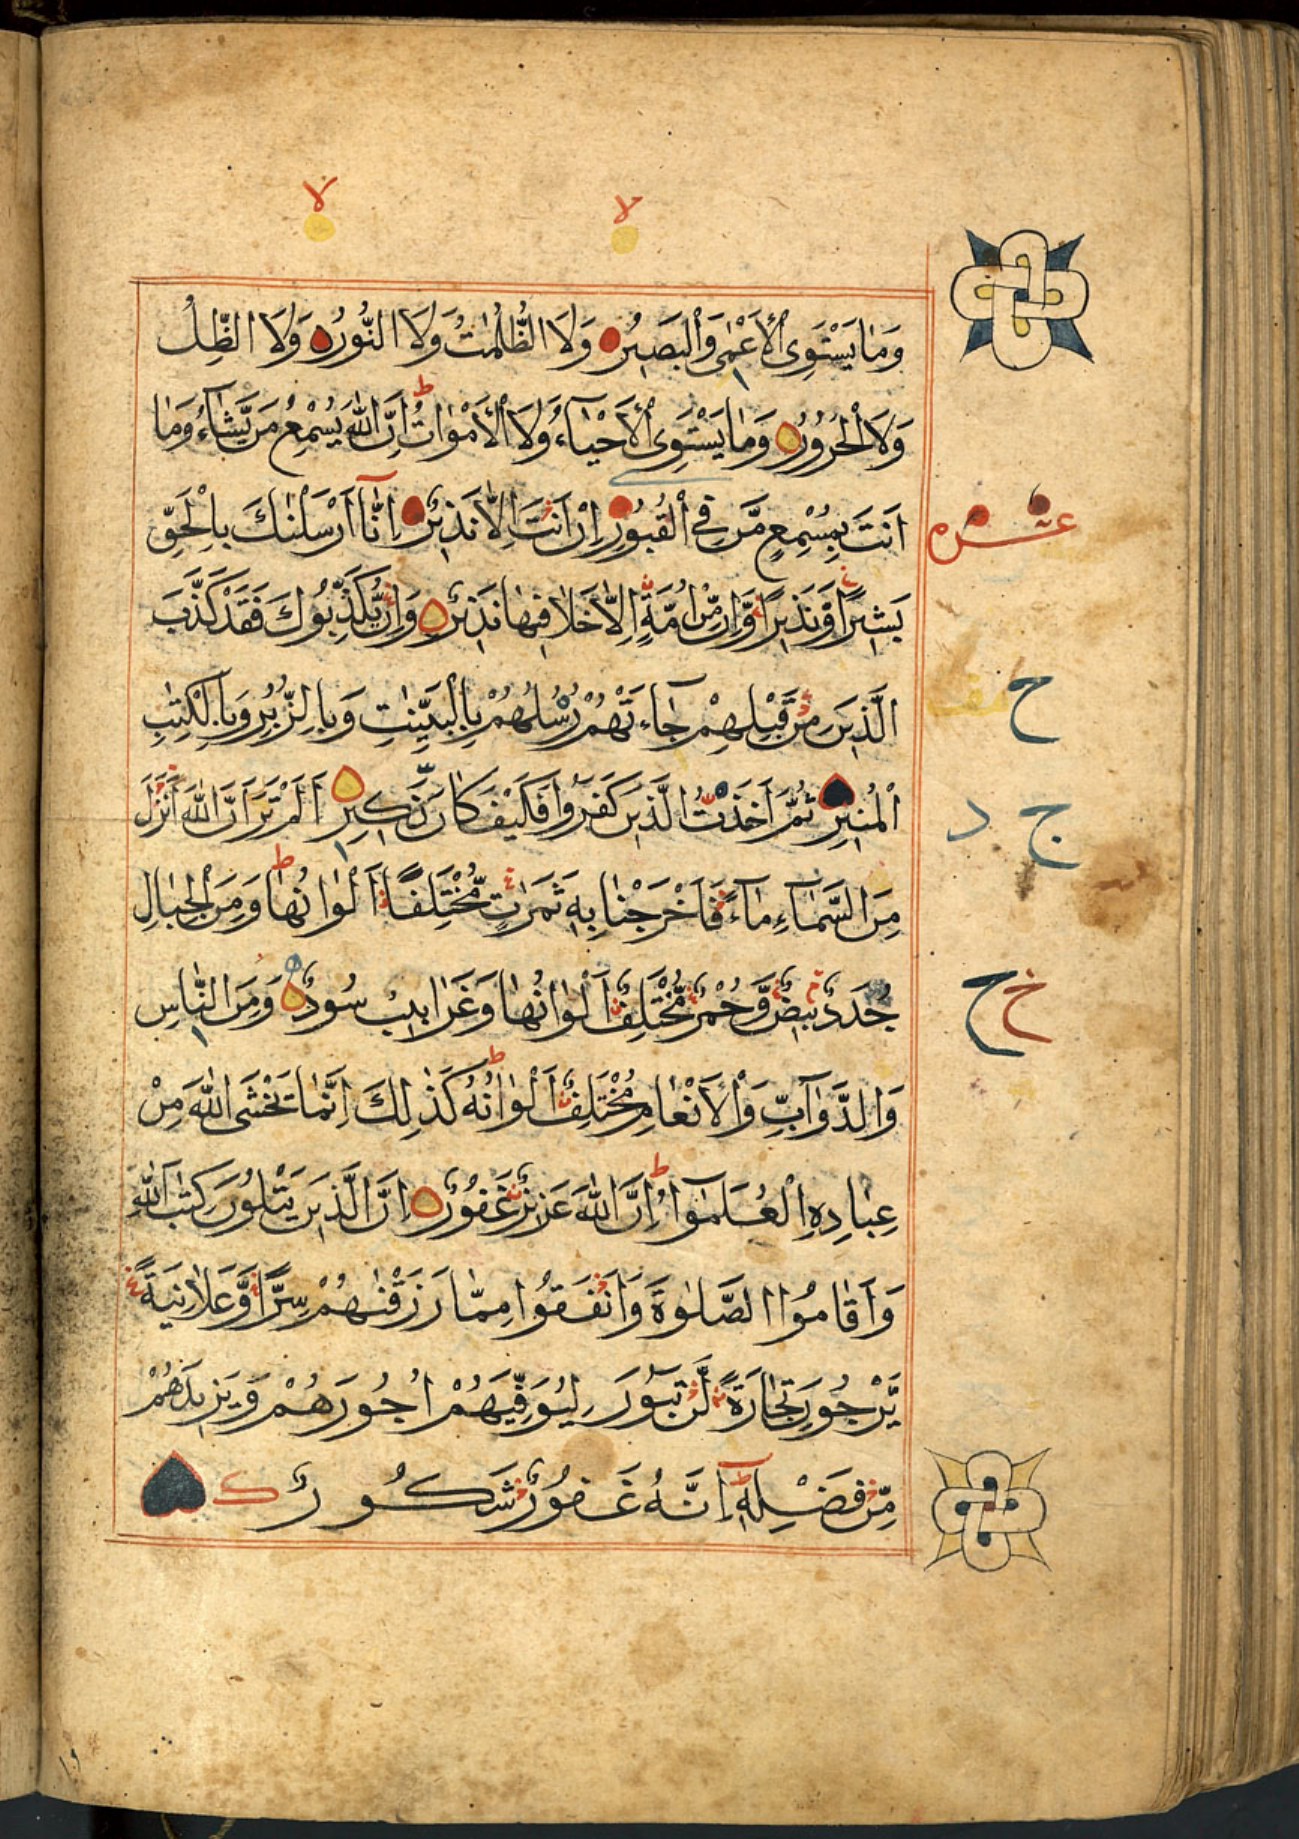 لا لا
وَمَا يَسْتَوِى الْاَعْمٰى وَالْبَصِيْرُ وَلَا الظُّلُمٰتُ وَلَا النُّوْرُ وَلَا الظِّلُّ
وَلَا الْحَرُوْرُ وَمَا يَسْتَوِى الْاَحْيَآءُ وَلَا الْاَمْوَاتُ ط اِنَّ اللّٰهَ يُسْمِعُ مَنْ يَّشَآءُ وَمَا
اَنْتَ بِمُسْمِعٍ مَّنْ فِى الْقُبُوْرِ اِنْ اَنْتَ اِلَّا نَذِيْرٌ اِنَّآ اَرْسَلْنٰكَ بِالْحَقِّ
عشر
بَشِيْرًا وَّنَذِيْرًا وَّاِنْ مِّنْ اُمَّةٍ اِلَّا خَلَا فِيْهَا نَذِيْرٌ وَاِنْ يُّكَذِّبُوْكَ فَقَدْ كَذَّبَ
الَّذِيْنَ مِنْ قَبْلِهِمْ جَآءَتْهُمْ رُسُلُهُمْ بِالْبَيِّنٰتِ وَبِالزُّبُرِ وَبِالْكِتٰبِ
ح
الْمُنِيْرِ ثُمَّ اَخَذْتُ الَّذِيْنَ كَفَرُوْا فَكَيْفَ كَانَ نَكِيْرِ اَلَمْ تَرَ اَنَّ اللّٰهَ اَنْزَلَ
ج د
مِنَ السَّمَآءِ مَآءً فَاَخْرَجْنَا بِهٖ ثَمَرٰتٍ مُّخْتَلِفًا اَلْوَانُهَا ط وَمِنَ الْجِبَالِ
جُدَدٌ بِيْضٌ وَّحُمْرٌ مُّخْتَلِفٌ اَلْوَانُهَا وَغَرَابِيْبُ سُوْدٌ وَمِنَ النَّاسِ
خ ح
وَالدَّوَآبِّ وَالْاَنْعَامِ مُخْتَلِفٌ اَلْوَانُهٗ ط كَذٰلِكَ اِنَّمَا يَخْشَى اللّٰهَ مِنْ
عِبَادِهِ الْعُلَمٰٓؤُا ط اِنَّ اللّٰهَ عَزِيْزٌ غَفُوْرٌ اِنَّ الَّذِيْنَ يَتْلُوْنَ كِتٰبَ اللّٰهِ
وَاَقَامُوا الصَّلٰوةَ وَاَنْفَقُوْا مِمَّا رَزَقْنٰهُمْ سِرًّا وَّعَلَانِيَةً
يَّرْجُوْنَ تِجَارَةً لَّنْ تَبُوْرَ لِيُوَفِّيَهُمْ اُجُوْرَهُمْ وَيَزِيْدَهُمْ
مِّنْ فَضْلِهٖ ط اِنَّهٗ غَفُوْرٌ شَكُوْرٌ ك